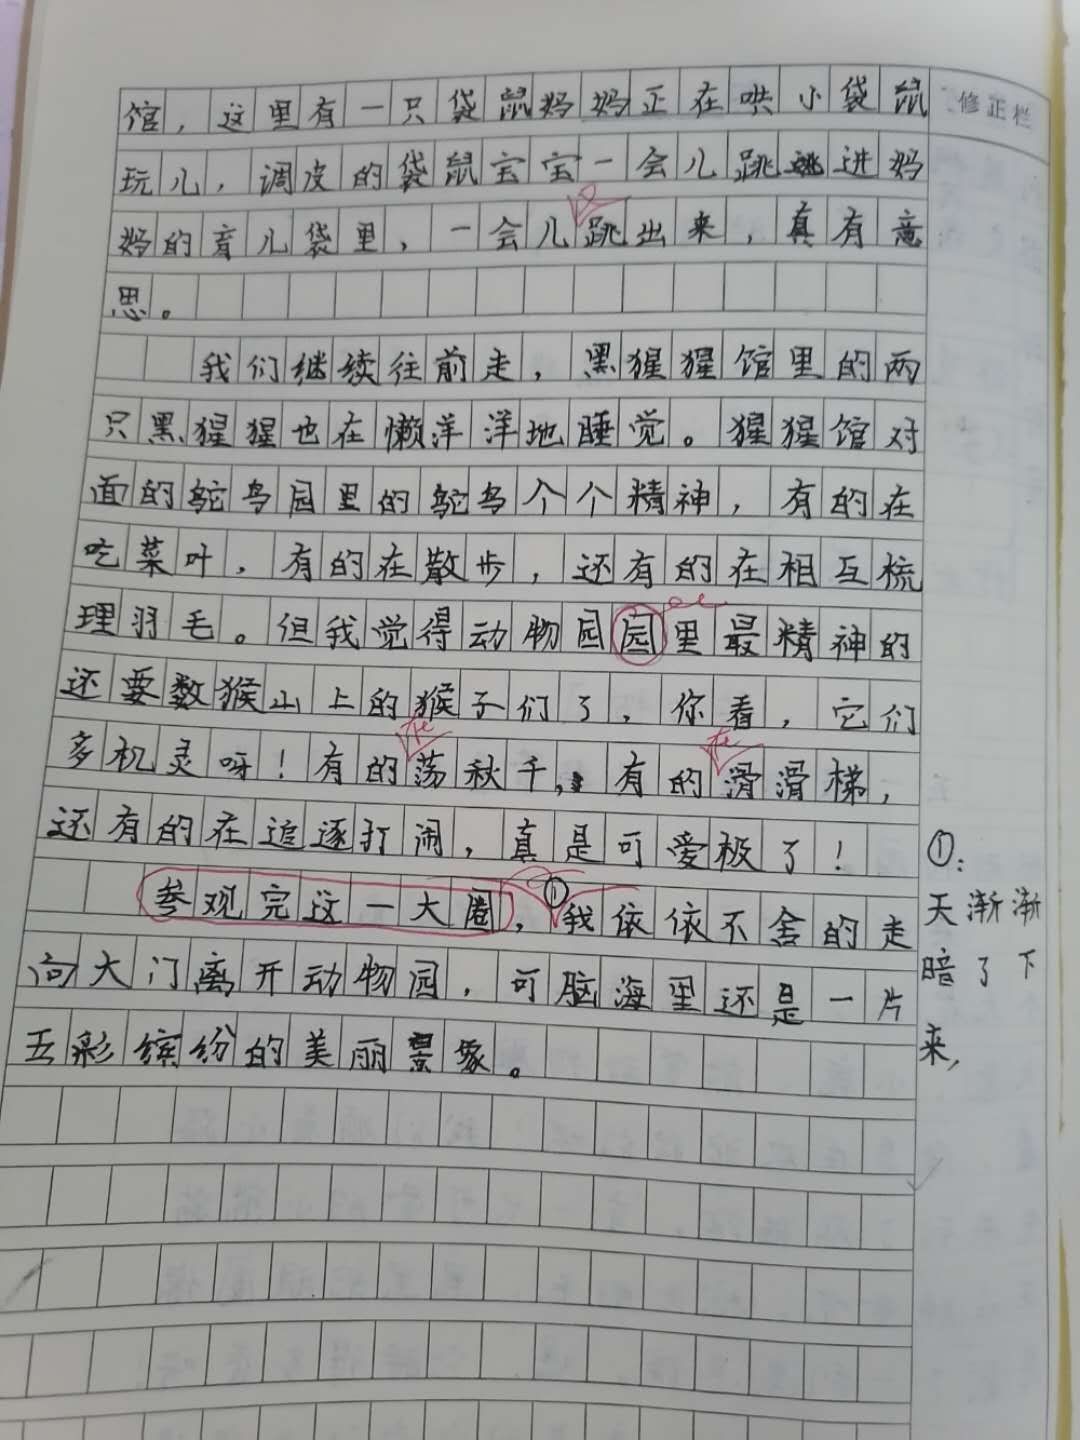 修正栏
馆，这里有一只袋鼠妈妈正在哄小袋鼠
玩儿，调皮的袋鼠宝宝一会儿跳跳进妈
又
妈的育儿袋里，一会儿跳出来，真有意
思。
我们继续往前走，黑猩猩馆里的两
只黑猩猩也在懒洋洋地睡觉。猩猩馆对
面的鸵鸟园里的鸵鸟个个精神，有的在
吃菜叶，有的在散步，还有的在相互梳
理羽毛。但我觉得动物园园里最精神的
还要数猴山上的猴子们了，你看，它们
在 在
多机灵呀！有的荡秋千，有的滑滑梯，
还有的在追逐打闹，真是可爱极了！
参观完这一大圈，①我依依不舍的走
向大门离开动物园，可脑海里还是一片
五彩缤纷的美丽景象。
①：
天渐渐
暗了下
来，